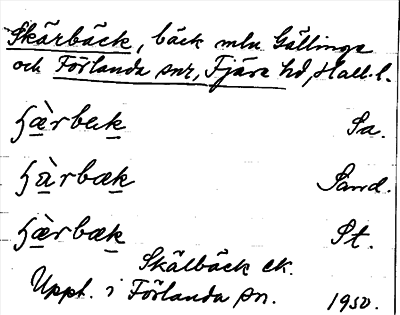 Skärbäck, bäck mln Gällinge
och Förlanda snr, Fjäre hd, Hall. l.
ʃæ̀rbæk Sa.
ʃæ̀rbæk Sand.
ʃæ̀rbæk St.
Skälbäck ek.
Uppt. i Förlanda sn. 1950.